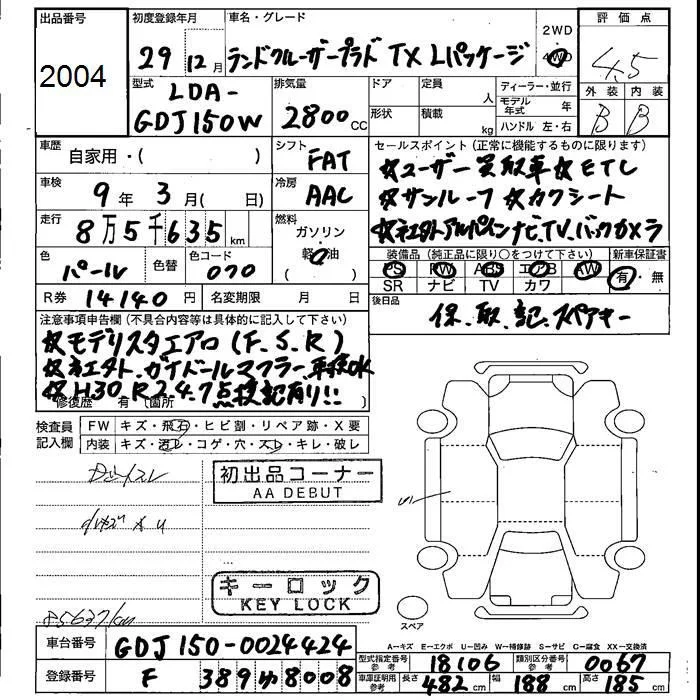 出品番号
2004
初度登録年月
29 12月
車名・グレード
ランドクルーザープラド TX Lパッケージ
2WD
4WD
評価点
4.5
外装 内装
B B
型式
LDA-
GDJ150W
排気量
2800cc
ドア 定員 人
形状 積載 kg
ディーラー・並行
モデル年式 年
ハンドル 左・右
車歴
自家用・( )
シフト
FAT
セールスポイント(正常に機能するものに限ります)
☆ユーザー買取車☆ETC
☆サンルーフ☆カワシート
ナビ.TV.バックカメラ
車検
9年 3月( 日)
冷房
AAC
走行
8万5千635km
燃料
ガソリン
軽油
色
パール
色替
色コード
070
装備品(純正品に限り○をつけて下さい)
PS PW ABS エアB AW
SR ナビ TV カワ
新車保証書
有・無
R券 14140円
名変期限 月 日
後日品
保.取.記.スペアキー
注意事項申告欄(不具合内容等は具体的に記入して下さい)
☆モデリスタエアロ(F.S.R)
マフラー.車検OK
☆H30 R2.4.7点検記有り!!
修復歴 有〔箇所 〕
検査員
記入欄
FW キズ・飛石・ヒビ割・リペア跡・X要
内装 キズ・汚レ・コゲ・穴・スレ・キレ・破レ
初出品コーナー
AA DEBUT
キーロック
KEY LOCK
85637km
スペア
A=キズ E=エクボ U=凹み W=補修跡 S=サビ C=腐食 XX=交換済
車台番号
GDJ150-0024424
登録番号
F 389 ゆ 8008
型式指定番号
参考
18106
類別区分番号
参考
0067
車庫証明用
参考
長さ 482cm 幅 188cm 高さ 185cm